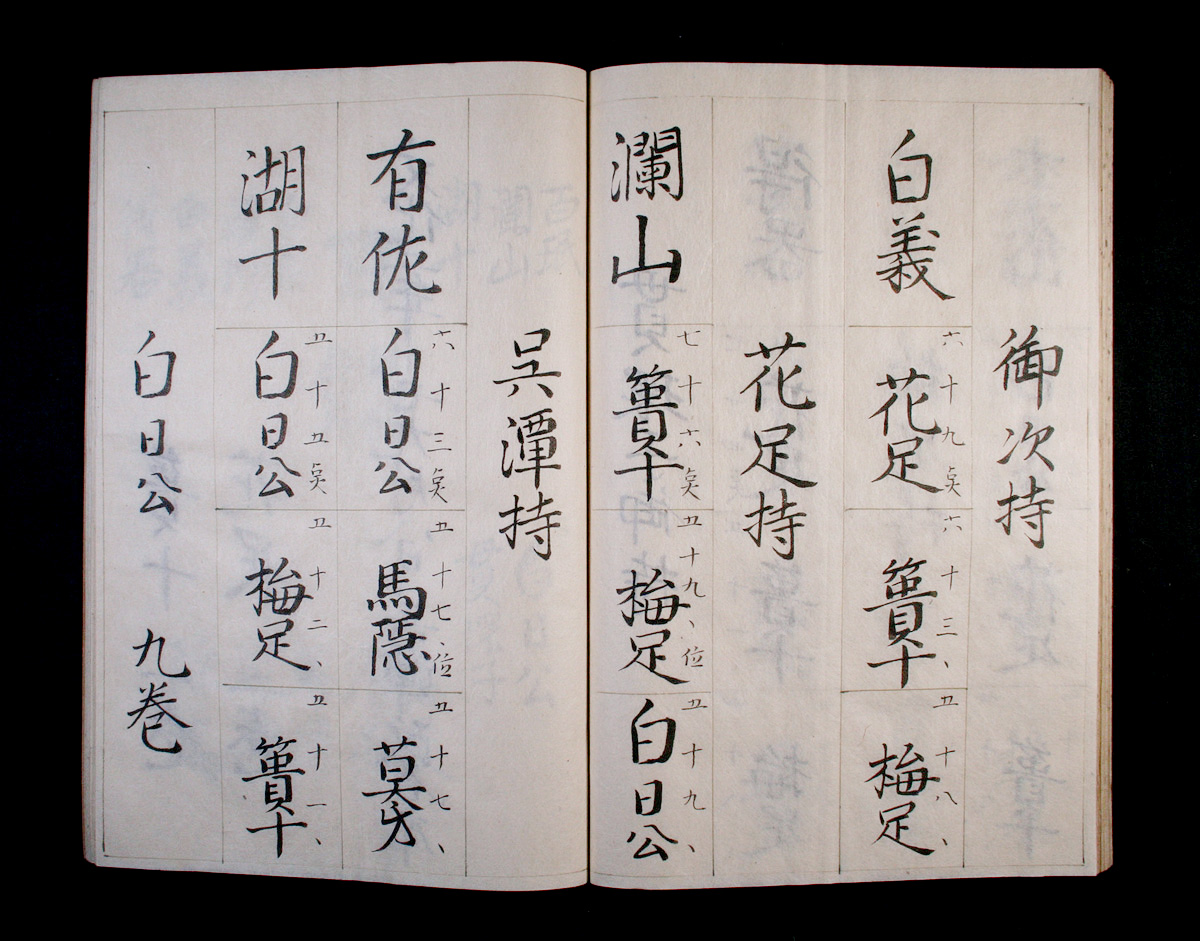 御次持
白義
六十九点
花足
六十三、
簣十
五十八、
梅足
花足持
瀾山
七十六点
簣十
五十九、位
梅足
五十九、
白日公
呉潭持
有佐
六十三点
白日公
五十七、位
馬隠
五十七、
湖十
五十五点
白日公
五十二、
梅足
五十一、
簣十
白日公
九巻